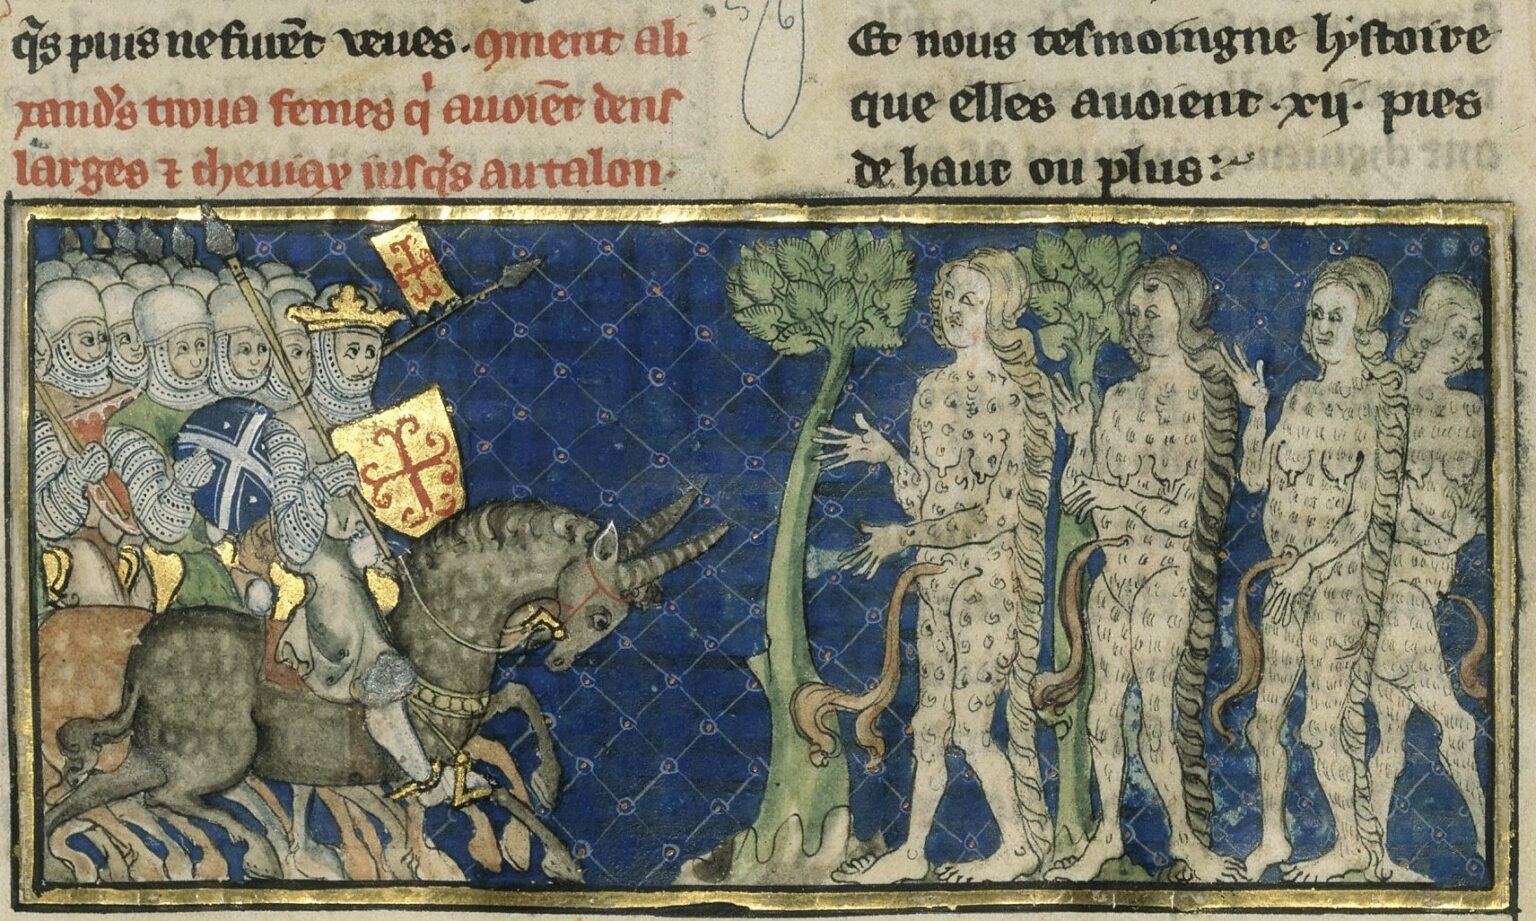 q̃s puis ne furẽt veues. 9ment ali
xandˢs trova femes qⁱ avoiẽt dens
larges ⁊ cheviax jusq̃s au talon.
Et nous tesmoingne hystoire
que elles avoient .xij. pies
de haut ou plus: